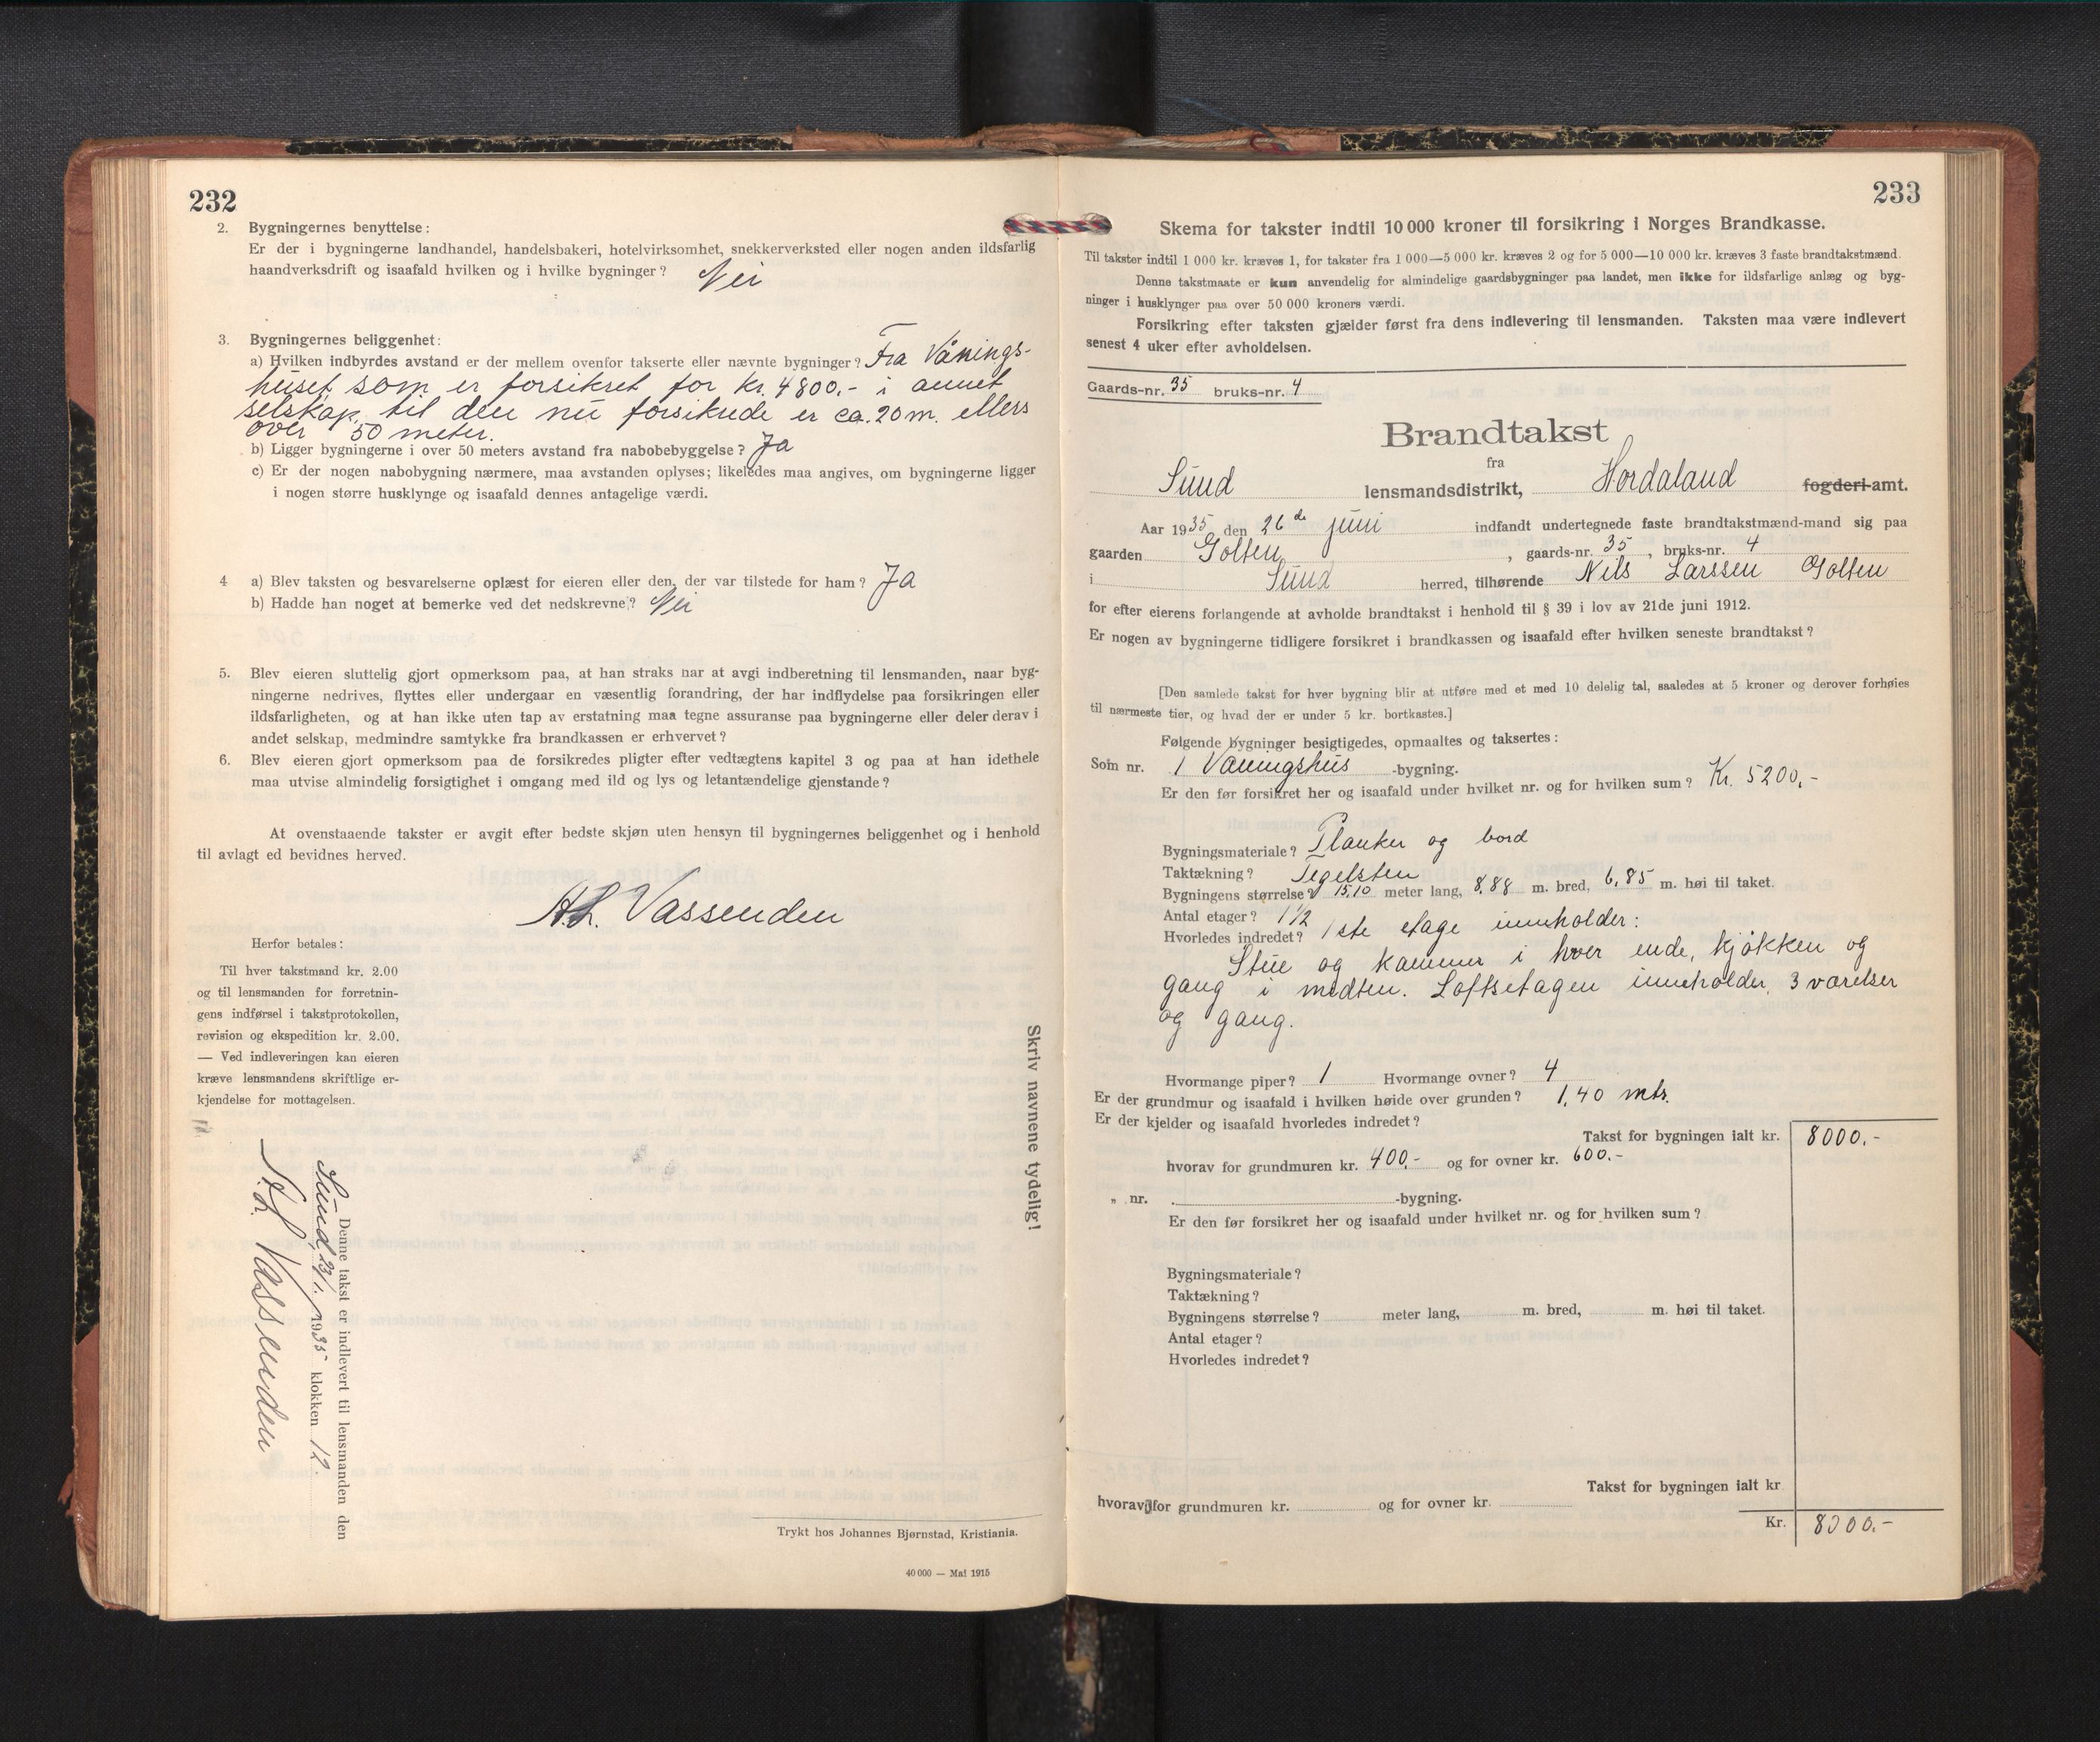 232
2. Bygningernes benyttelse:
Er der i bygningerne landhandel, handelsbakeri, hotelvirksomhet, snekkerverksted eller nogen anden ildsfarlig
haandverksdrift og isaafald hvilken og i hvilke bygninger? Nei
3. Bygningernes beliggenhet:
a) Hvilken indbyrdes avstand er der mellem ovenfor takserte eller nævnte bygninger? Fra Vånings-
huset som er forsikret for kr. 4800,- i annet
selskap, til den nu forsikrede er ca. 20 m. ellers
over 50 meter.
b) Ligger bygningerne i over 50 meters avstand fra nabobebyggelse? Ja
c) Er der nogen nabobygning nærmere, maa avstanden oplyses; likeledes maa angives, om bygningerne ligger
i nogen større husklynge og isaafald dennes antagelige værdi.
4 a) Blev taksten og besvarelserne oplæst for eieren eller den, der var tilstede for ham? Ja
b) Hadde han noget at bemerke ved det nedskrevne? Nei
5. Blev eieren sluttelig gjort opmerksom paa, at han straks har at avgi indberetning til lensmanden, naar byg-
ningerne nedrives, flyttes eller undergaar en væsentlig forandring, der har indflydelse paa forsikringen eller
ildsfarligheten, og at han ikke uten tap av erstatning maa tegne assuranse paa bygningerne eller deler derav i
andet selskap, medmindre samtykke fra brandkassen er erhvervet?
6. Blev eieren gjort opmerksom paa de forsikredes pligter efter vedtægtens kapitel 3 og paa at han idethele
maa utvise almindelig forsigtighet i omgang med ild og lys og letantændelige gjenstande?
At ovenstaaende takster er avgit efter bedste skjøn uten hensyn til bygningernes beliggenhet og i henhold
til avlagt ed bevidnes herved.
A.L. Vassenden
Herfor betales:
Til hver takstmand kr. 2.00
og til lensmanden for forretnin-
gens indførsel i takstprotokollen,
revision og ekspedition kr. 2.00.
— Ved indleveringen kan eieren
kræve lensmandens skriftlige er-
kjendelse for mottagelsen.
Skriv navnene tydelig!
Denne takst er indlevert til lensmanden den
Sund 1935 klokken 12.
A.L. Vassenden
Trykt hos Johannes Bjørnstad, Kristiania.
40 000 — Mai 1915
233
Skema for takster indtil 10 000 kroner til forsikring i Norges Brandkasse.
Til takster indtil 1 000 kr. kræves 1, for takster fra 1 000—5 000 kr. kræves 2 og for 5 000—10 000 kr. kræves 3 faste brandtakstmænd.
Denne takstmaate er kun anvendelig for almindelige gaardsbygninger paa landet, men ikke for ildsfarlige anlæg og byg-
ninger i husklynger paa over 50 000 kroners værdi.
Forsikring efter taksten gjælder først fra dens indlevering til lensmanden. Taksten maa være indlevert
senest 4 uker efter avholdelsen.
Gaards-nr. 35 bruks-nr. 4
Brandtakst
fra
Sund lensmandsdistrikt, Hordaland fogderi-amt.
Aar 1935 den 26de juni indfandt undertegnede faste brandtakstmænd-mand sig paa
gaarden Golten, gaards-nr. 35, bruks-nr. 4
i Sund herred, tilhørende Nils Larssen Golten
for efter eierens forlangende at avholde brandtakst i henhold til § 39 i lov av 21de juni 1912.
Er nogen av bygningerne tidligere forsikret i brandkassen og isaafald efter hvilken seneste brandtakst?
[Den samlede takst for hver bygning blir at utføre med et med 10 delelig tal, saaledes at 5 kroner og derover forhøies
til nærmeste tier, og hvad der er under 5 kr. bortkastes.]
Følgende bygninger besigtigedes, opmaaltes og taksertes:
Som nr. 1 Våningshus -bygning.
Er den før forsikret her og isaafald under hvilket nr. og for hvilken sum? Kr. 5200,-
Bygningsmateriale? Planker og bord
Taktækning? Tegelsten
Bygningens størrelse? 15,10 meter lang, 8,88 m. bred, 6,85 m. høi til taket.
Antal etager? 1 1/2
Hvorledes indredet? 1ste etage inneholder:
Stue og kammer i hver ende, kjøkken og
gang i midten. Loftsetagen inneholder, 3 værelser
og gang.
Hvormange piper? 1 Hvormange ovner? 4
Er der grundmur og isaafald i hvilken høide over grunden? 1,40 mtr.
Er der kjelder og isaafald hvorledes indredet?
Takst for bygningen ialt kr. 8000,-
hvorav for grundmuren kr. 400,- og for ovner kr. 600.-
„ nr. -bygning.
Er den før forsikret her og isaafald under hvilket nr. og for hvilken sum?
Bygningsmateriale?
Taktækning?
Bygningens størrelse? meter lang, m. bred, m. høi til taket.
Antal etager?
Hvorledes indredet?
Takst for bygningen ialt kr
hvorav for grundmuren kr. og for ovner kr.
Kr. 8000.-